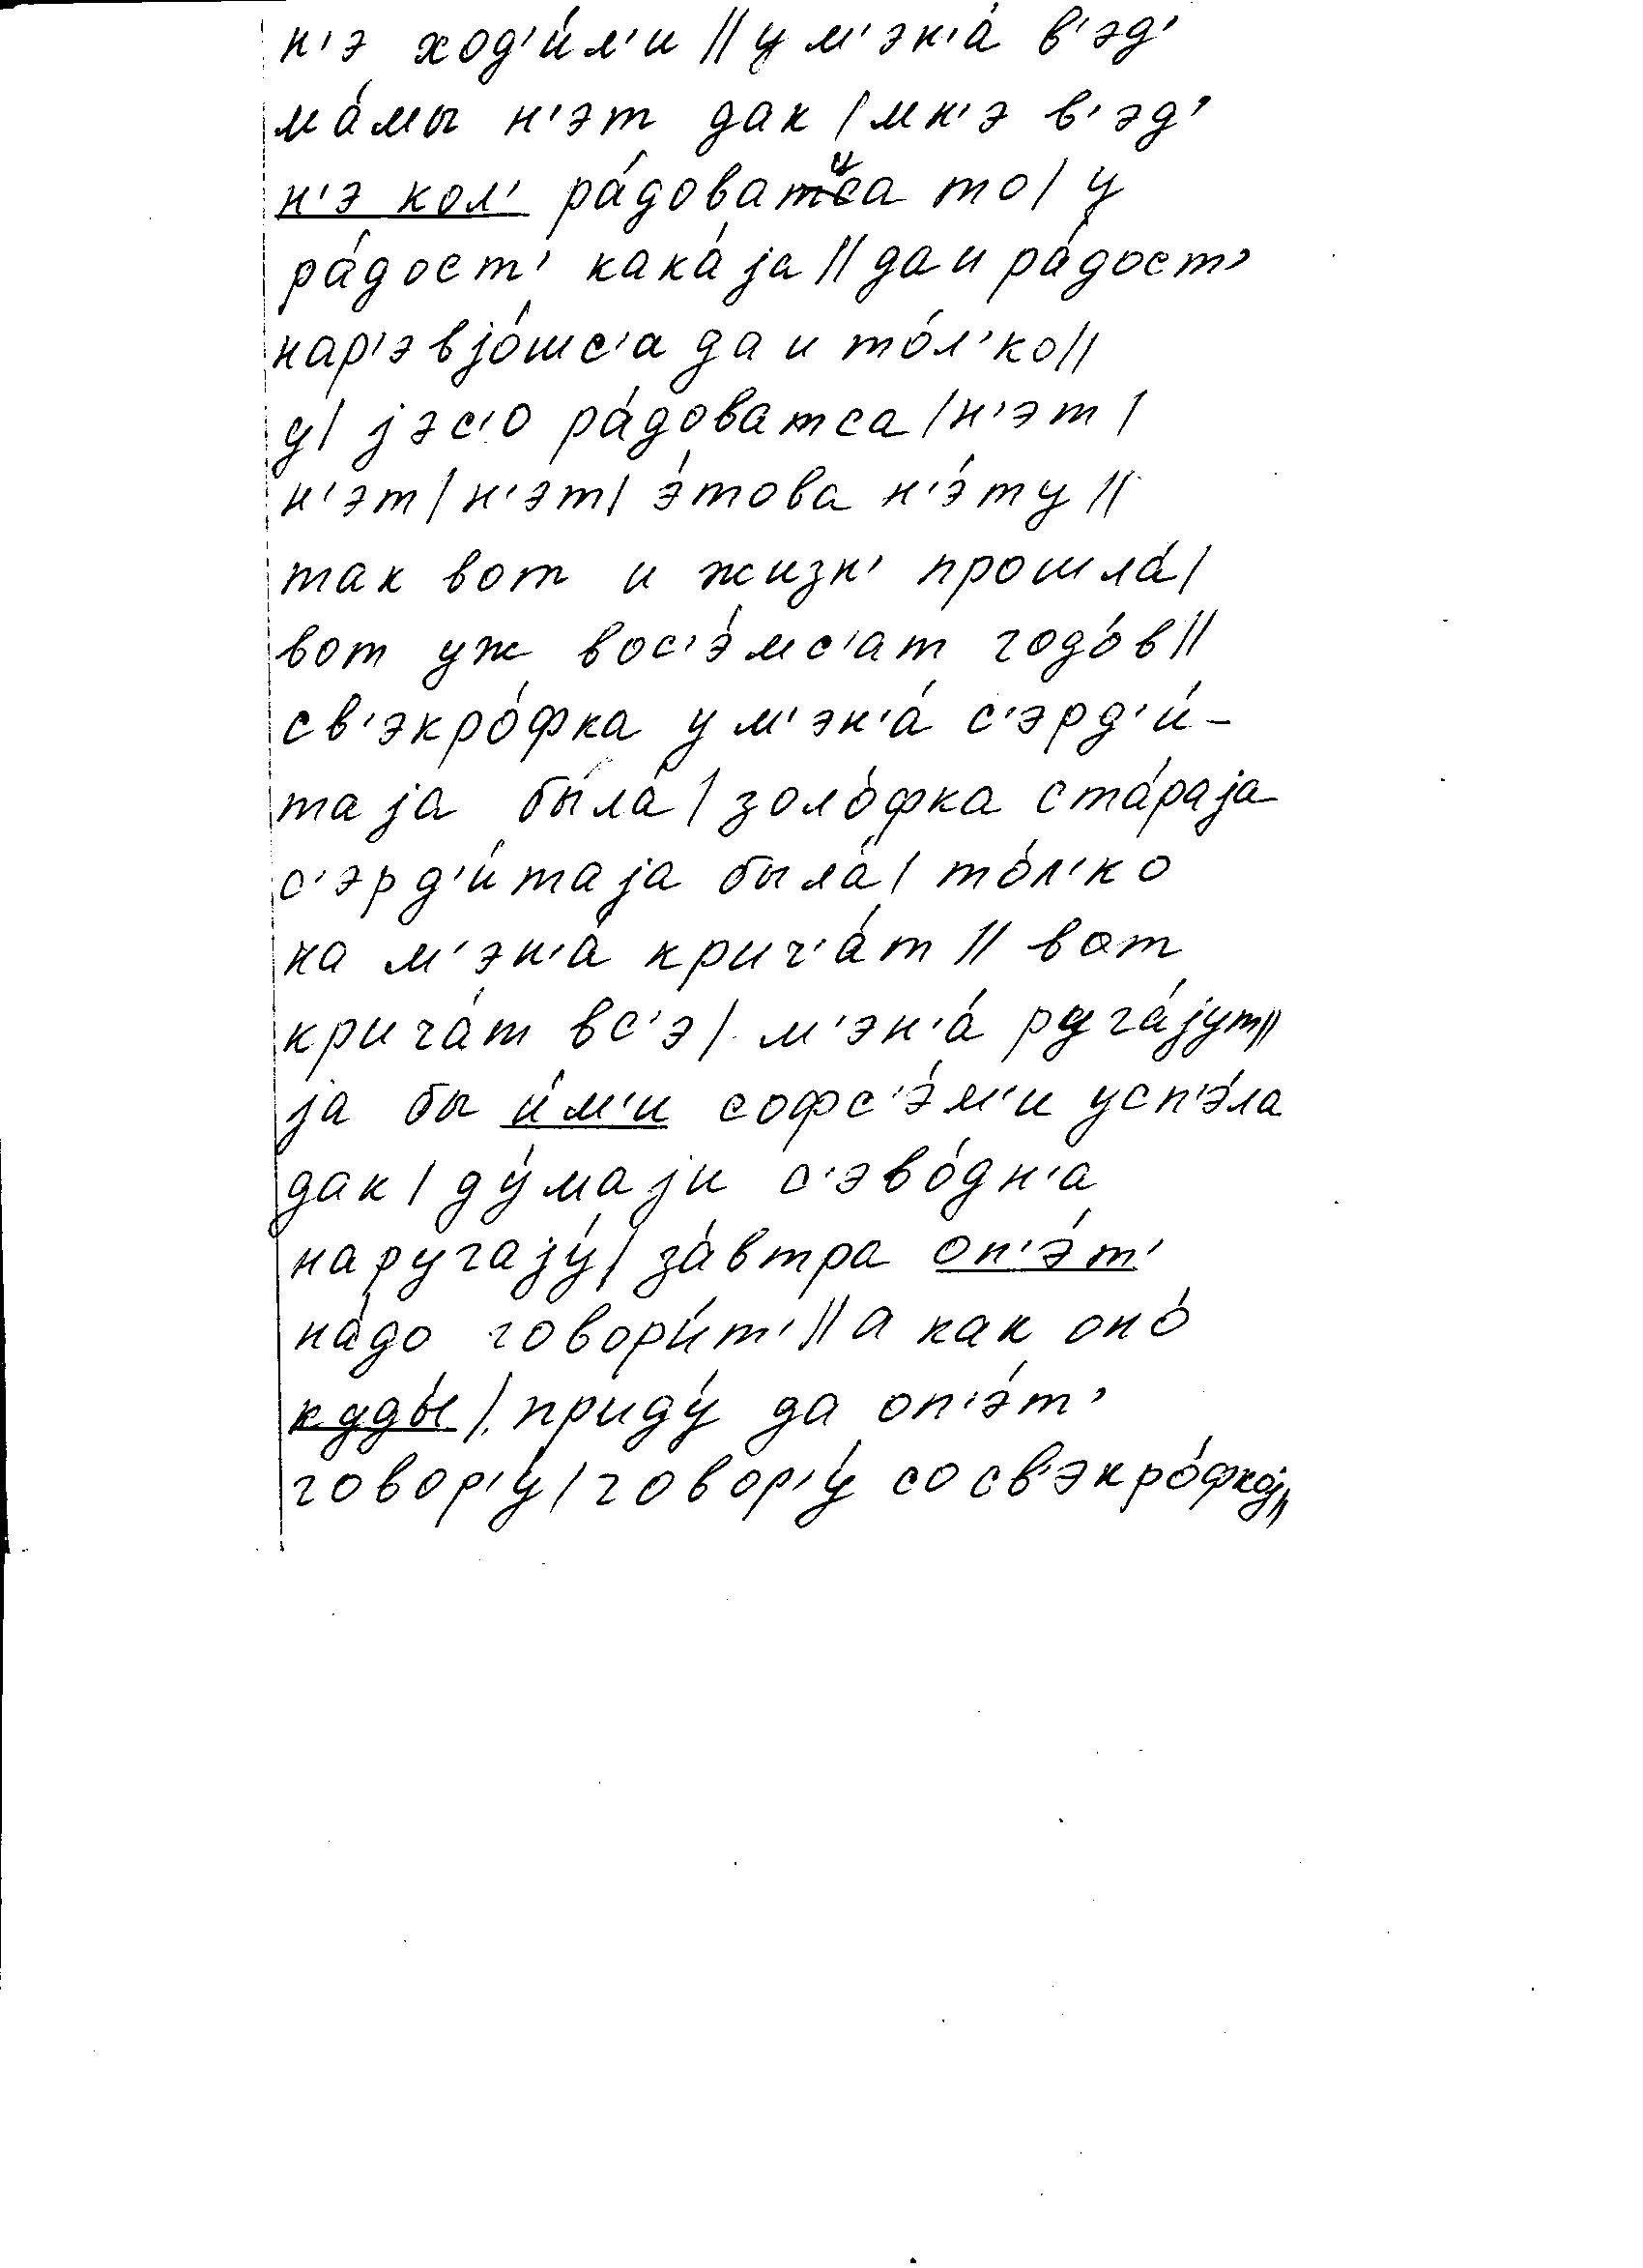 н'э ход'и́л'и || у м'эн'а́ в'эд'
ма́мы н'эт дак | мн'э в'эд'
н'э кол' ра́доваца то | у
ра́дост' кака́jа || да и ра́дост'
нар'эвjо́шс'а да и то́л'ко ||
у | jэс'о ра́доватса | н'эт |
н'эт | н'эт | э́това н'э́ту ||
так вот и жизн' прошла́ |
вот уж вос'э́мс'ат годо́в ||
св'экро́фка у м'эн'а́ с'эрд'и́-
таjа бы́ла́ | золо́фка ста́раjа
с'эрд'и́таjа была́ | то́л'ко
на м'эн'а́ крич'а́т || вот
крича́т вс'э | м'эн'а́ руга́jут ||
jа бы и́м'и софс'э́м'и усп'э́ла
дак | ду́маjи с'эво́дн'а
наругаjу́ | за́втра оп'э́т'
на́до говори́т' || а как оно́
куды́ | приду́ да оп'э́т'
говор'у́ | говор'у́ со св'экро́фкоj ||